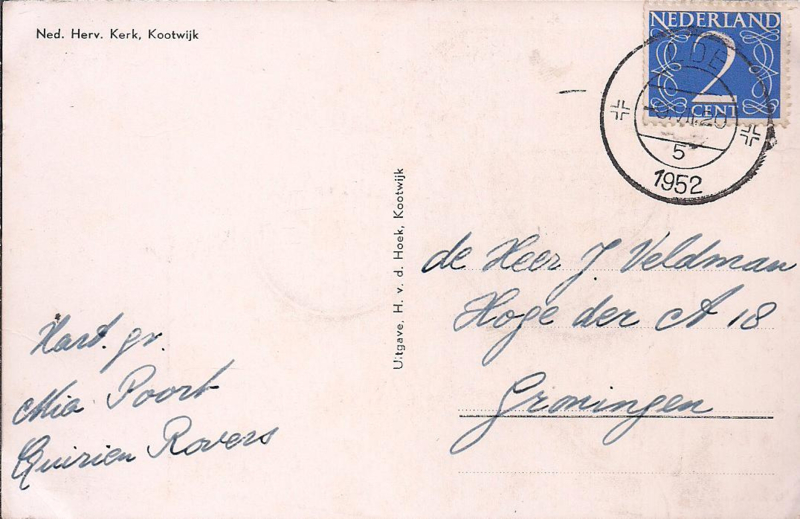 Ned. Herv. Kerk, Kootwijk
NEDERLAND
2
CENT
5
1952
Uitgave, H. v. d. Hoek, Kootwijk
de Heer J. Veldman
Hoge der A 18
Groningen
Hart. gr.
Mia Poort
Quirien Rovers